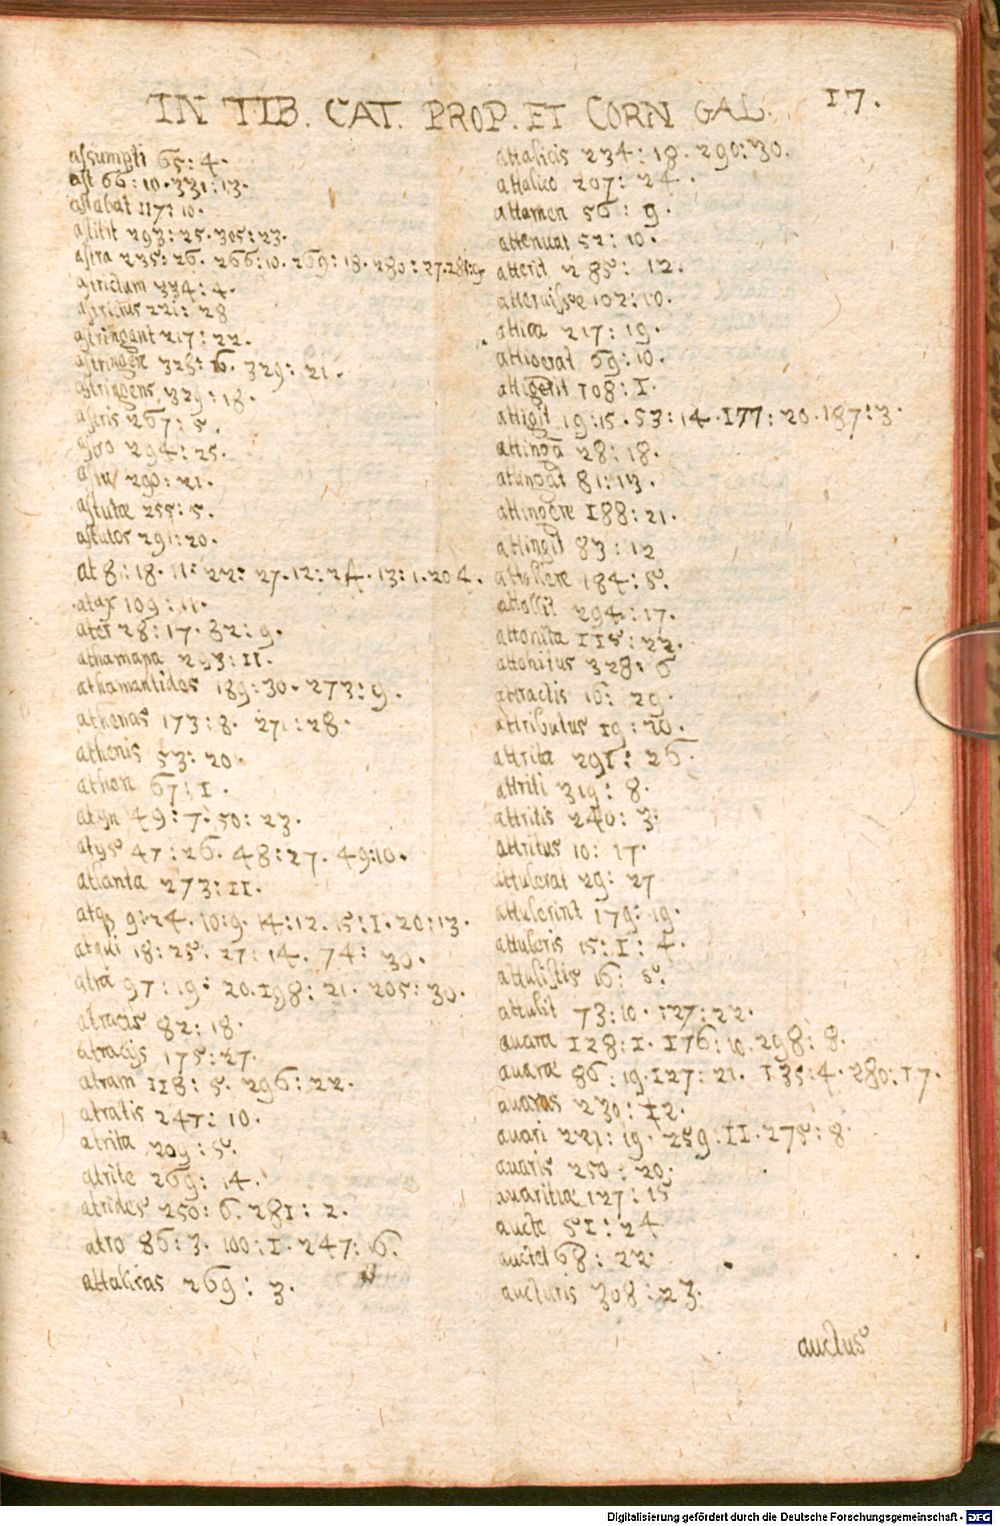 IN TIB. CAT. PROP. ET CORN GAL. 17.
assumpti 65: 4.
ast 66: 10. 331: 13.
astabat 117: 10.
astitit 293: 25. 305: 23.
astra 235: 26. 266: 10. 269: 18. 280: 27. 281: 9
334: 4.
221: 28
astringant 217: 22.
astringere 328: 16. 329: 21.
astringens 329: 18.
astris 267: 5.
astro 294: 25.
290: 21.
astutæ 255: 5.
astutos 291: 20.
at 8: 18. 11: 22: 27. 12: 24. 13: 1. 204.
atax 109: 11.
ater 28: 17. 32: 9.
athamana 293: 11.
athamantidos 189: 30. 273: 9.
athenas 173: 8. 271: 28.
athenis 53: 20.
athon 67: 1.
atyn 49: 7. 50: 23.
atys 47: 26. 48: 27. 49: 10.
atlanta 273: 11.
atqꝫ 9: 24. 10: 9. 14: 12. 15: 1. 20: 13.
atqui 18: 25. 27: 14. 74: 30.
atra 97: 19. 20. 198: 21. 205: 30.
atracis 82: 18.
atracijs 175: 27.
atram 118: 5. 296: 22.
atratis 247: 10.
atrita 209: 5.
atrite 269: 14.
atrides 250: 6. 281: 2.
atro 86: 3. 100: 1. 247: 6.
attalicas 269: 3.
attalicis 234: 18. 290: 30.
attalico 207: 24.
attamen 56: 9.
attenuat 52: 10.
atterit 285: 12.
102: 10.
attica 217: 19.
attigerat 69: 10.
attigerit 108: 1.
attigit 19: 15. 53: 14. 177: 20. 187: 3.
attingā 28: 18.
attingat 81: 13.
attingere 188: 21.
attingit 83: 12
attollere 184: 5.
attollit 294: 17.
attonita 115: 22.
attonitus 328: 6
attractis 16: 29.
attributus 19: 20.
attrita 291: 26.
attriti 319: 8.
attritis 240: 3.
attritus 10: 17.
attulerat 29: 27
attulerint 179: 19.
attuleris 15: 1: 4.
attulistis 16: 5.
attulit 73: 10. 127: 22.
auara 128: 1. 176: 10. 298: 8.
auaræ 86: 19. 127: 21. 135: 4. 280: 17.
auaras 230: 12.
auari 221: 19. 259: 11. 275: 8.
auaris 250: 20.
auaritiæ 127: 15
aucte 51: 24
auctet 68: 22.
aucturis 308: 23.
auctus
Digitalisierung gefördert durch die Deutsche Forschungsgemeinschaft - DFG